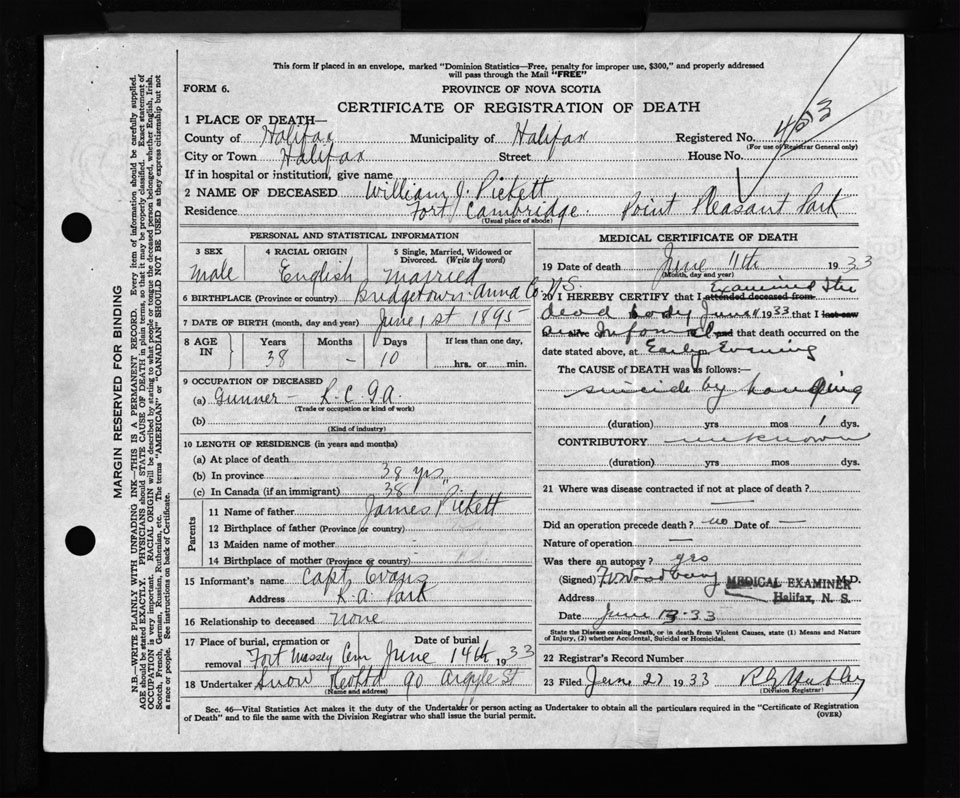 This form if placed in an envelope, marked "Dominion Statistics—Free, penalty for improper use, $300," and properly addressed
will pass through the Mail "FREE"
FORM 6.
PROVINCE OF NOVA SCOTIA
CERTIFICATE OF REGISTRATION OF DEATH
1 PLACE OF DEATH—
County of Halifax Municipality of Halifax Registered No. 403
(For use of Registrar General only)
City or Town Halifax Street House No.
If in hospital or institution, give name
2 NAME OF DECEASED William J. Pickett
Residence Fort Cambridge. Point Pleasant Park
(Usual place of abode)
PERSONAL AND STATISTICAL INFORMATION
3 SEX 4 RACIAL ORIGIN 5 Single, Married, Widowed or
Divorced. (Write the word)
Male English Married
6 BIRTHPLACE (Province or country) Bridgetown Anna Co N.S.
7 DATE OF BIRTH (month, day and year) June 1st 1895
8 AGE IN Years Months Days If less than one day,
38 - 10 hrs. or min.
9 OCCUPATION OF DECEASED
(a) Gunner - R.C.G.A.
(Trade or occupation or kind of work)
(b)
(Kind of industry)
10 LENGTH OF RESIDENCE (in years and months)
(a) At place of death
(b) In province 38 yrs
(c) In Canada (if an immigrant) 38 "
Parents
11 Name of father James Pickett
12 Birthplace of father (Province or country)
13 Maiden name of mother
14 Birthplace of mother (Province or country)
15 Informant's name Capt Evans
Address R.A. Park
16 Relationship to deceased none
17 Place of burial, cremation or Date of burial
removal Fort Massey Cem June 14th 1933
18 Undertaker Snow & Co Ltd 90 Argyle St
(Name and address)
MEDICAL CERTIFICATE OF DEATH
19 Date of death June 11th 1933
(Month, day and year)
20 I HEREBY CERTIFY that I attended deceased from Examined the
dead body June 11 1933 that I last saw
and that death occurred on the
date stated above, at Early Evening
The CAUSE OF DEATH was as follows:
suicide by hanging
(duration) yrs mos 1 dys.
CONTRIBUTORY unknown
(duration) yrs mos dys.
21 Where was disease contracted if not at place of death?
Did an operation precede death? no Date of —
Nature of operation —
Was there an autopsy? yes
(Signed) M.D.
MEDICAL EXAMINER
Address Halifax, N. S.
Date June 13. 33
State the Disease causing Death, or in death from Violent Causes, state (1) Means and Nature
of Injury, (2) whether Accidental, Suicidal or Homicidal.
22 Registrar's Record Number
23 Filed June 27 1933
(Division Registrar)
Sec. 46—Vital Statistics Act makes it the duty of the Undertaker or person acting as Undertaker to obtain all the particulars required in the "Certificate of Registration
of Death" and to file the same with the Division Registrar who shall issue the burial permit. (OVER)
MARGIN RESERVED FOR BINDING
N.B.—WRITE PLAINLY WITH UNFADING INK—THIS IS A PERMANENT RECORD. Every item of information should be carefully supplied.
AGE should be stated EXACTLY. PHYSICIANS should STATE CAUSE OF DEATH in plain terms, so that it may be properly classified. Exact statement of
OCCUPATION is very important. RACIAL ORIGIN will be described by stating to what people or tongue the deceased person belonged, whether English, Irish,
Scotch, French, German, Russian, Ruthenian, etc. The terms "AMERICAN" or "CANADIAN" SHOULD NOT BE USED as they express citizenship but not
a race or people. See instructions on back of Certificate.